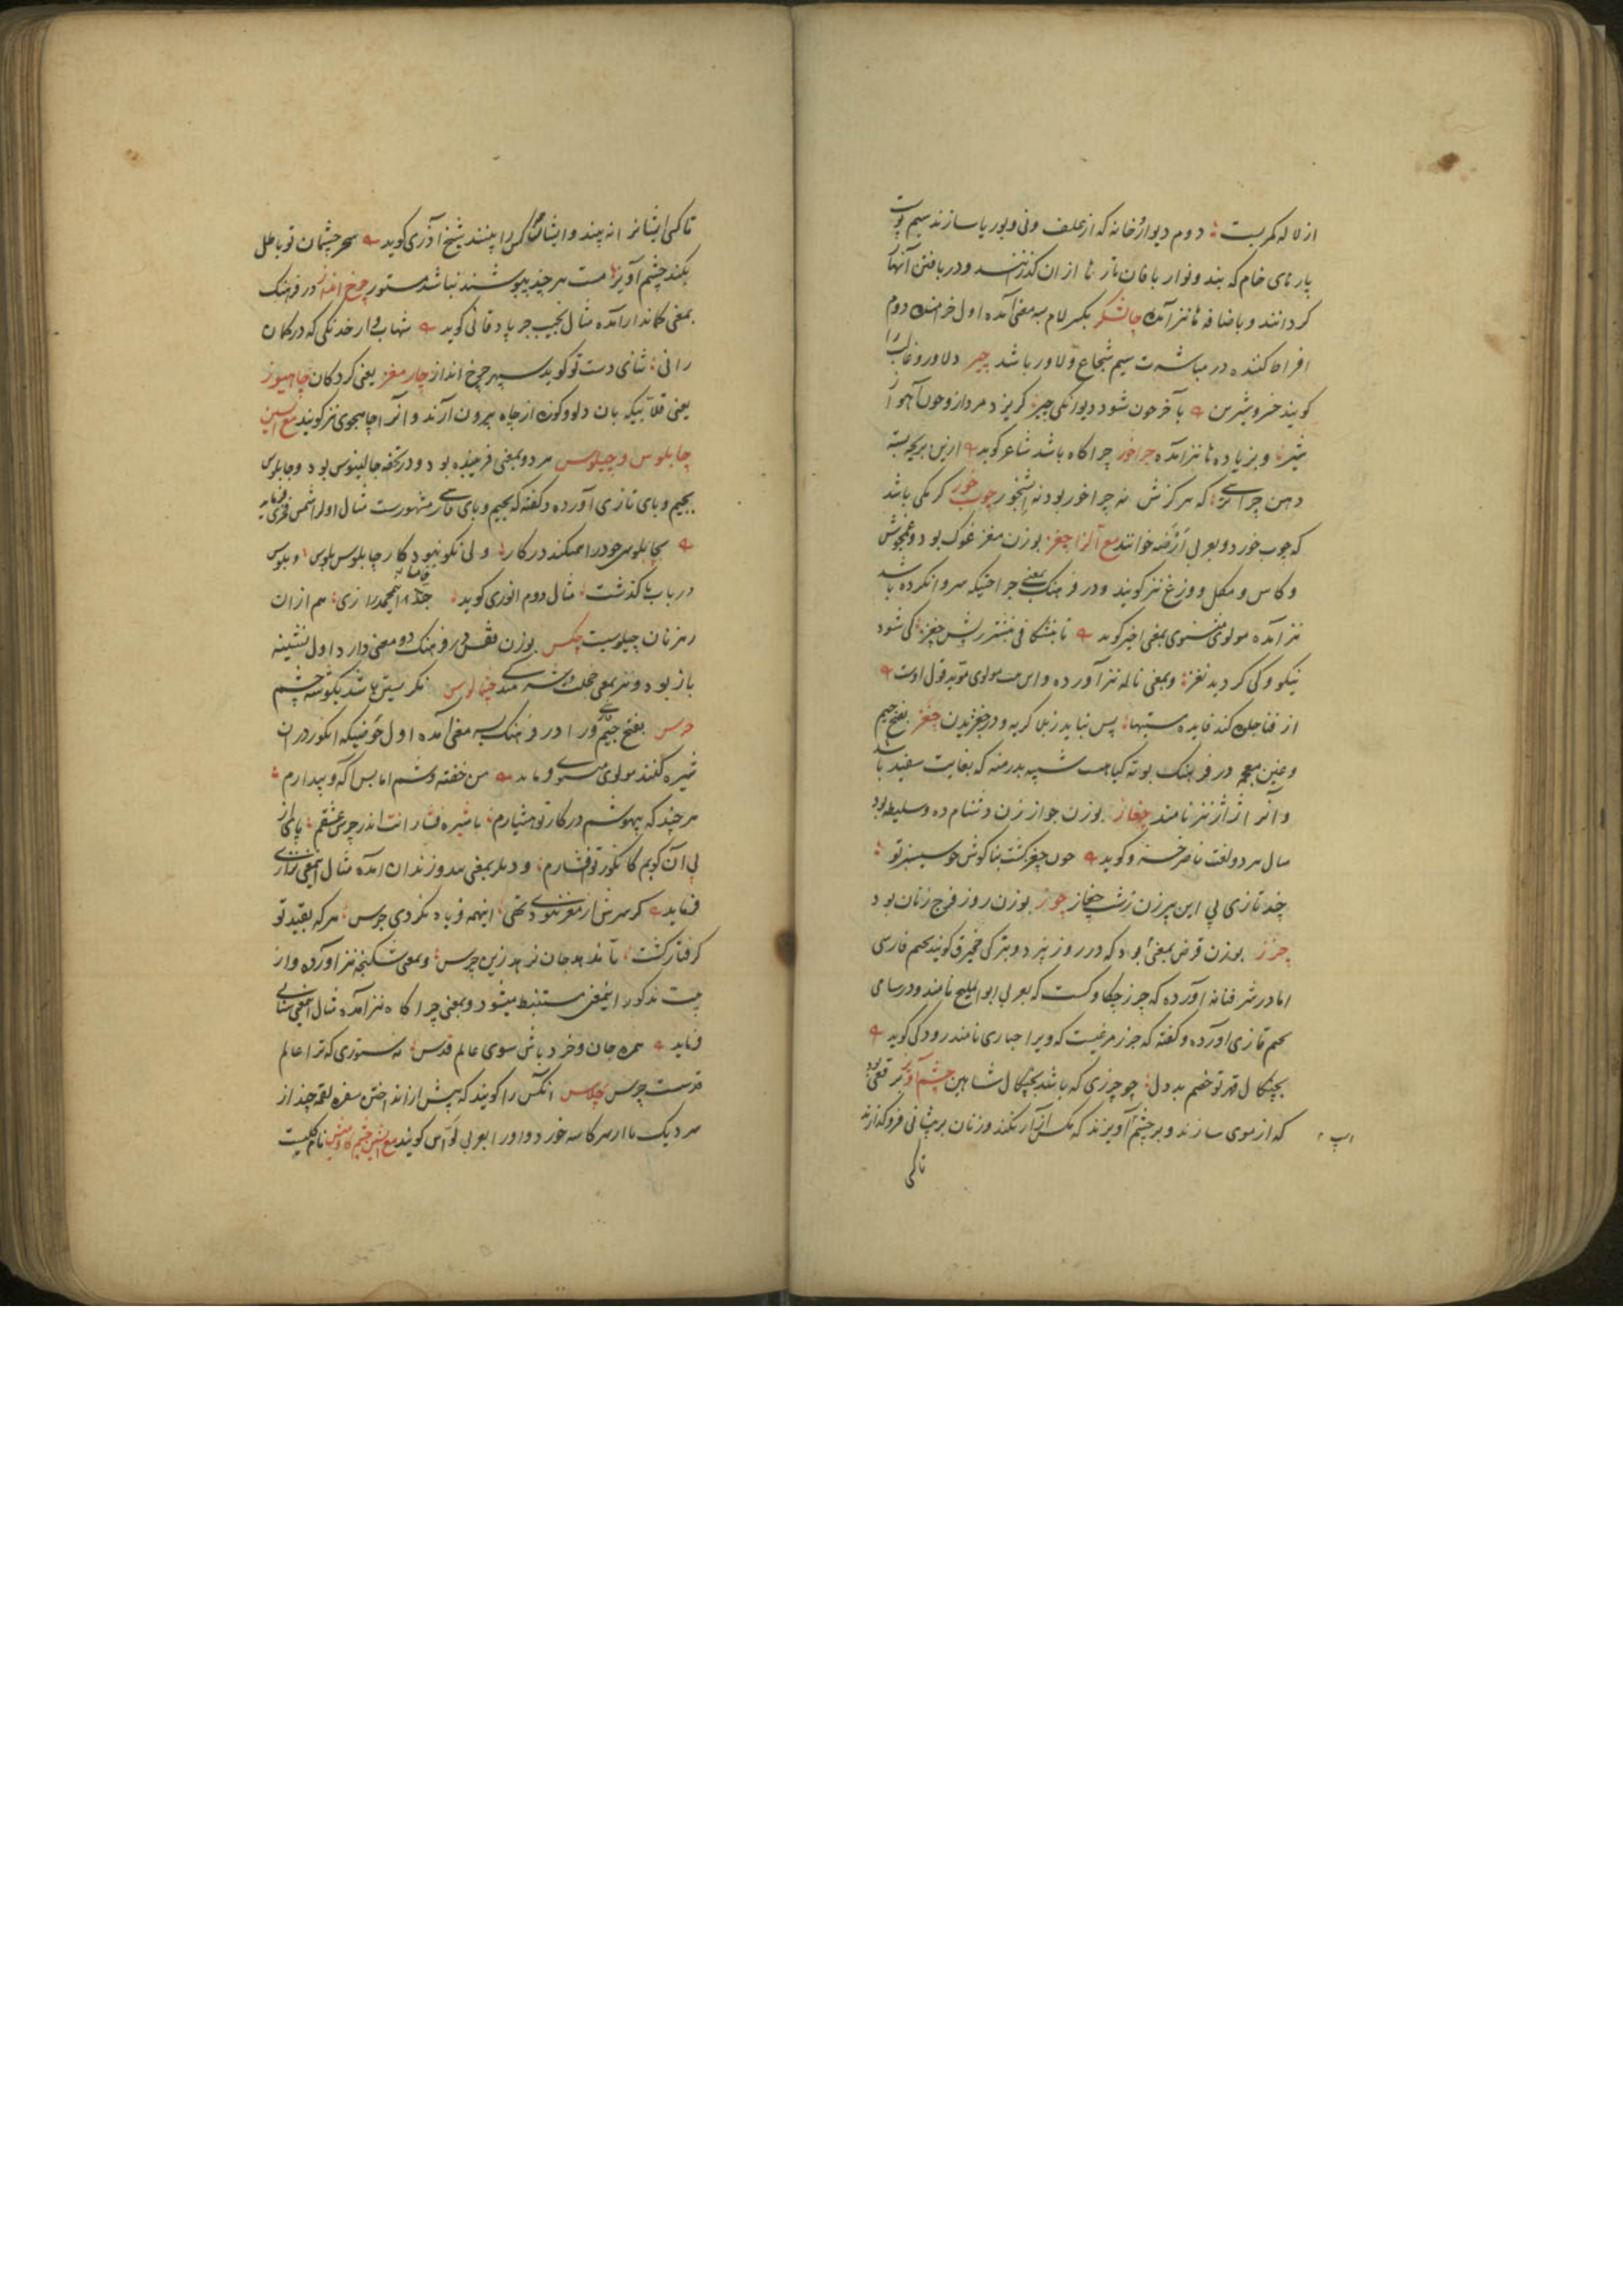 از لاله کمر بست؛ دوم دیوار خانه که از علف ونی وبوریا سازند سیم پوست
پارهای خام که بند ونوار بافان تارها از ان کذرانند ودر بافتن آنها
کردانند وباضافه ها نیز آمده چالشکر بکسر لام سه معنی آمده اول خرامنده دوم
افراط کننده در مباشرت سیم شجاع ودلاور باشد چیر دلاور وغالب را
کویند خسرو شیرین بآخر چون شود دیوانکی چیر؛ کریزد مردار وچون آهو از
شیر وبزیاده ها نیز آمده چراخور چراکاه باشد شاعر کوید ازین بریچه بسته
دهن چرا سی؛ که هرکزش نه چراخور بود نه آبشخور چوب خور کرمکی باشد
که چوب خورد وبعربی اَرَضه خوانند مع الزا چغز بوزن مغز غوک بود وغنجموش
وکاس ومکل ووزغ نیز کویند ودر فرهنک بمعنی جراحتیکه سر وانکرده باشد
نیز آمده مولوی مثنوی بمعنی اخیر کوید تا بنشکافی بنشتر ریش چغز؛ کی شود
نیکو وکی کردید نغز؛ وبمعنی ناله نیز آورده واین بیت مولوی مؤید قول اوست
از قناجک کند فایده ستها؛ پس نباید زبلا کریه ودر چغزیدن چغز بفتح جیم
وغین معجمه در فرهنک بوته کیاهست شبیه بدرمنه که بغایت سفید باشد
وآنرا ژاژ نیز نامند چغاز بوزن جواز زن دشنام ده وسلیطه بود
مثال هر دو لغت ناصر خسرو کوید چون چغز کشت بناکوش چو سیسنبر تو؛
چند تازی پی این پیرزن زشت چغاز چوز بوزن روز فرج زنان بود
چرز بوزن قرض بمعنی بود که در روز پرد وبترکی خجیرق کویند بجیم فارسی
اما در شرفنامه آورده که چرز چکاوکست که بعربی ابو الملیح نامند ودر سامی
بجیم تازی آورده وکفته که جرز مرغیست که ویرا حباری نامند رودکی کوید
بچنکال قهر تو خصم بددل؛ چو چرزی که باشد بچنکال شاهین چشم آویز برقعی بود
که از موی سازند وبر چشم آویزند که مکس آزار نکند وزنان بر پیشانی فروکذارند
تا کسی
تا کسی ایشانرا نه بیند وایشان کسی را بینند شیخ آذری کوید سحر چشمان تو باطل
نکند چشم آویز؛ مست هر چند بپوشند نباشد مستور چرخ انداز در فرهنک
بمعنی کماندار آمده مثال نجیب جرباد قانی کوید شهاب وار خدنکی که در کمان
رانی؛ ثنای دست تو کوید سپهر چرخ انداز چار مغز یعنی کردکان چاهیوز
یعنی قلابیکه بان دلو وکوزه از چاه بیرون آرند وآنرا چاهجوی نیز کویند مع السین
چابلوس وچپلوس هر دو بمعنی فریبنده بود ودر تحفه جالینوس بود وچابلوس
بجیم وبای تازی آورده وکفته که بجیم وبای فارسی مشهورست مثال اول را شمس فخری فرماید
بچابلوسی خود را همیکند در کار؛ ولی نکو نبود کار چابلوس پلوس؛ وپلوس
در باب با کذشت؛ مثال دوم انوری کوید؛ همچند رازی؛ هم از ان
رهزنان چپلوست چکس بوزن قفس در فرهنک دو معنی دارد اول نشیمنه
باز بود ونیز بمعنی خجلت وشرمندکی چپالوس نکریستن باشد بکوشه چشم
چرس بفتح جیم ورا در فرهنک سه معنی آمده اول حوضیکه انکور در ان
شیره کنند مولوی مثنوی فرماید من خفته وشم اما بس آکه وبیدارم؛
هر چند که بیهوشم در کار تو هشیارم؛ با شیره فشارانت اندر چرس عشقم؛ پای از
پی آن کوبم کانکور تو افشارم؛ ودیکر بمعنی بند وزندان آمده مثال اینمعنی نزاری
فرماید کر سرش از مغز نبودی تهی؛ اینهمه فریاد نکردی چرس؛ هرکه بقید تو
کرفتار کشت؛ تا ندهد جان نرهد زین چرس؛ وبمعنی شکنجه نیز آورده واز
بیت مذکور اینمعنی مستنبط میشود وبمعنی چراکاه نیز آمده مثال اینمعنی سنایی
فرماید همره جان وخرد باش سوی عالم قدس؛ نه ستوری که ترا عالم
قدست چرس چلاس انکس را کویند که پیش از انداختن سفره لقمه چند از
سر دیک یا از سر کاسه خورد واو را بعربی لوّاس کویند مع الشین چشم کاومیش نام کلیست